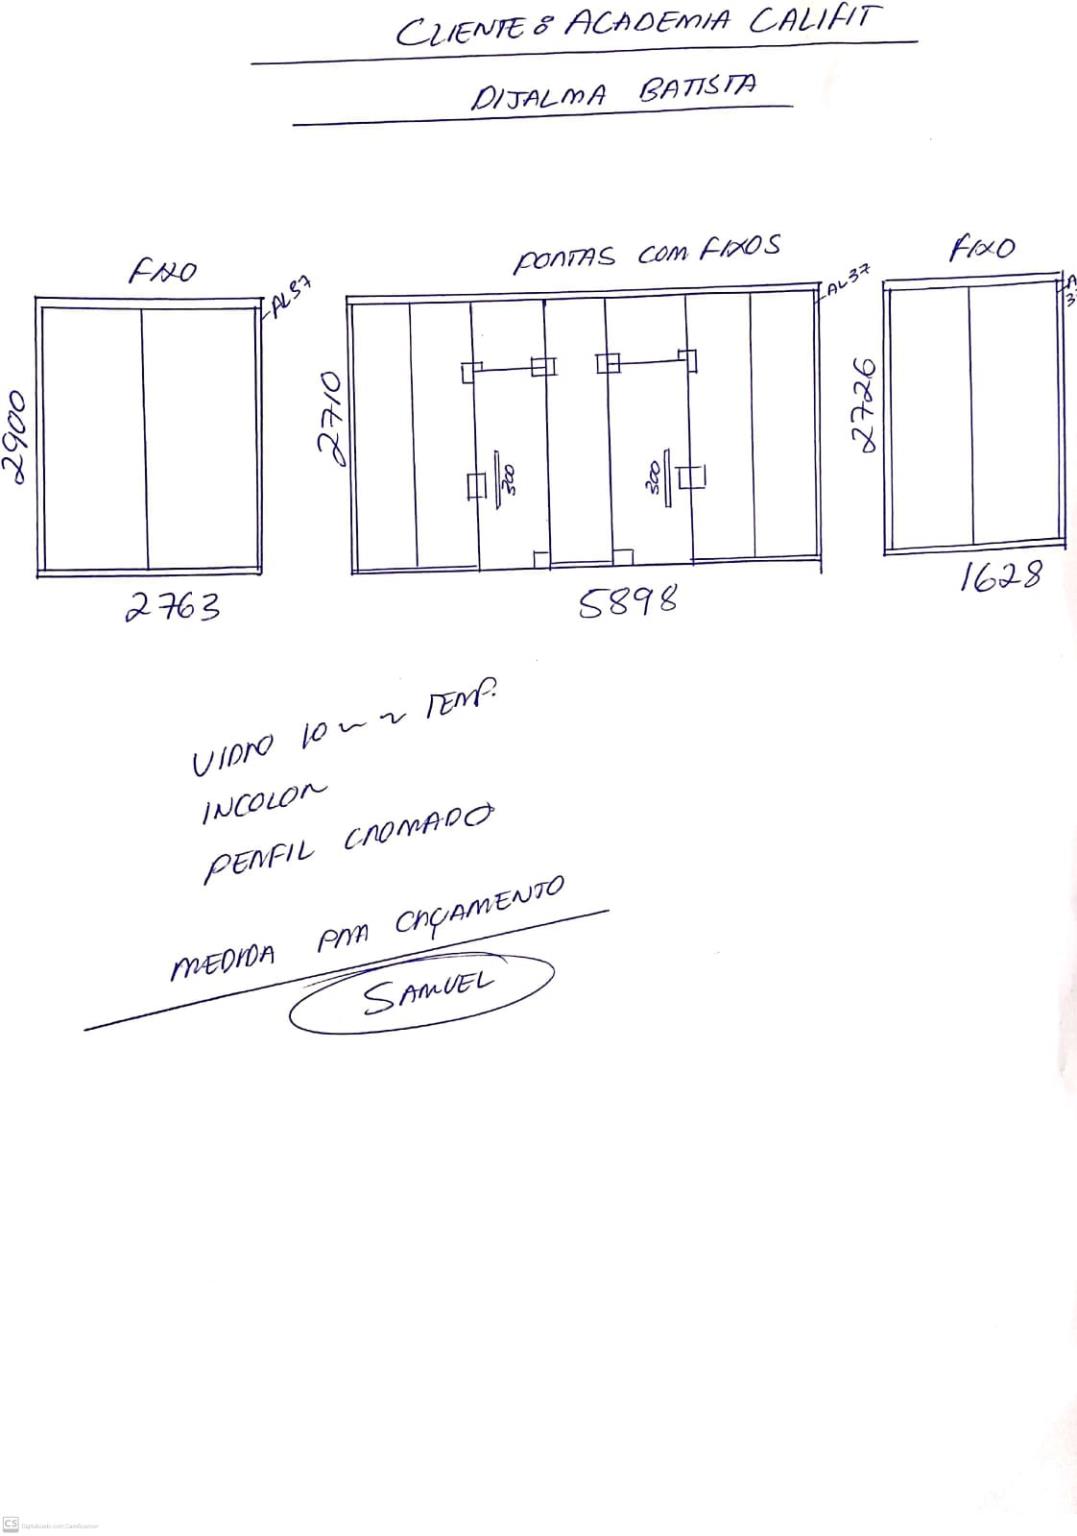 CLIENTE: ACADEMIA CALIFIT
DIJALMA BATISTA
FIXO
PORTAS COM FIXOS
FIXO
AL37
AL37
A
3
2900
2710
2726
300
300
2763
5898
1628
VIDRO 10mm TEMP.
INCOLOR
PERFIL CROMADO
MEDIDA PRA ORÇAMENTO
SAMUEL
CS Digitalizado com CamScanner